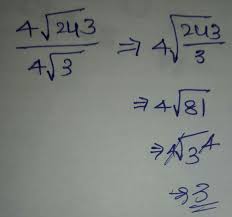 4√243 / 4√3 ⇒ 4√243/3
⇒ 4√81
⇒ 4√3^4
⇒ 3